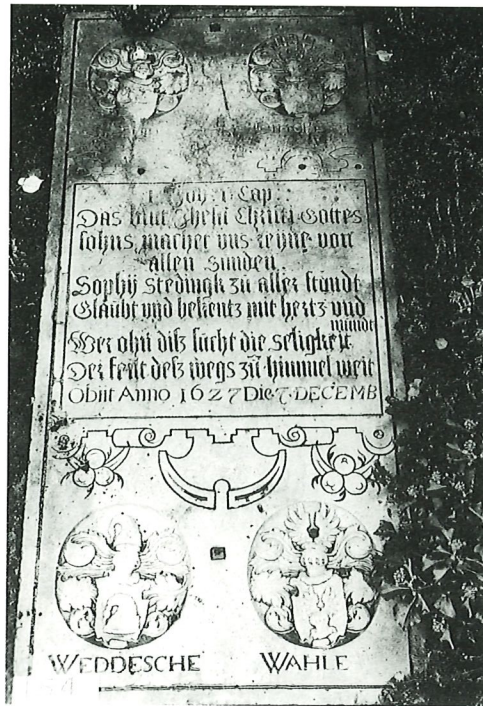 1 Joh: 1 Cap
Das blut Jhesu Christi Gottes
sohns, machet vns reyne von
allen sunden
Sophij Stedingk zu aller stundt
Glaubt vnd bekentz mit hertz vnd
mundt
Wer ohn diß sucht die seligkeit
Der feilt deß wegs zů himmel weit
Obiit Anno 1627 Die 7 DECEMB
WEDDESCHE WAHLE